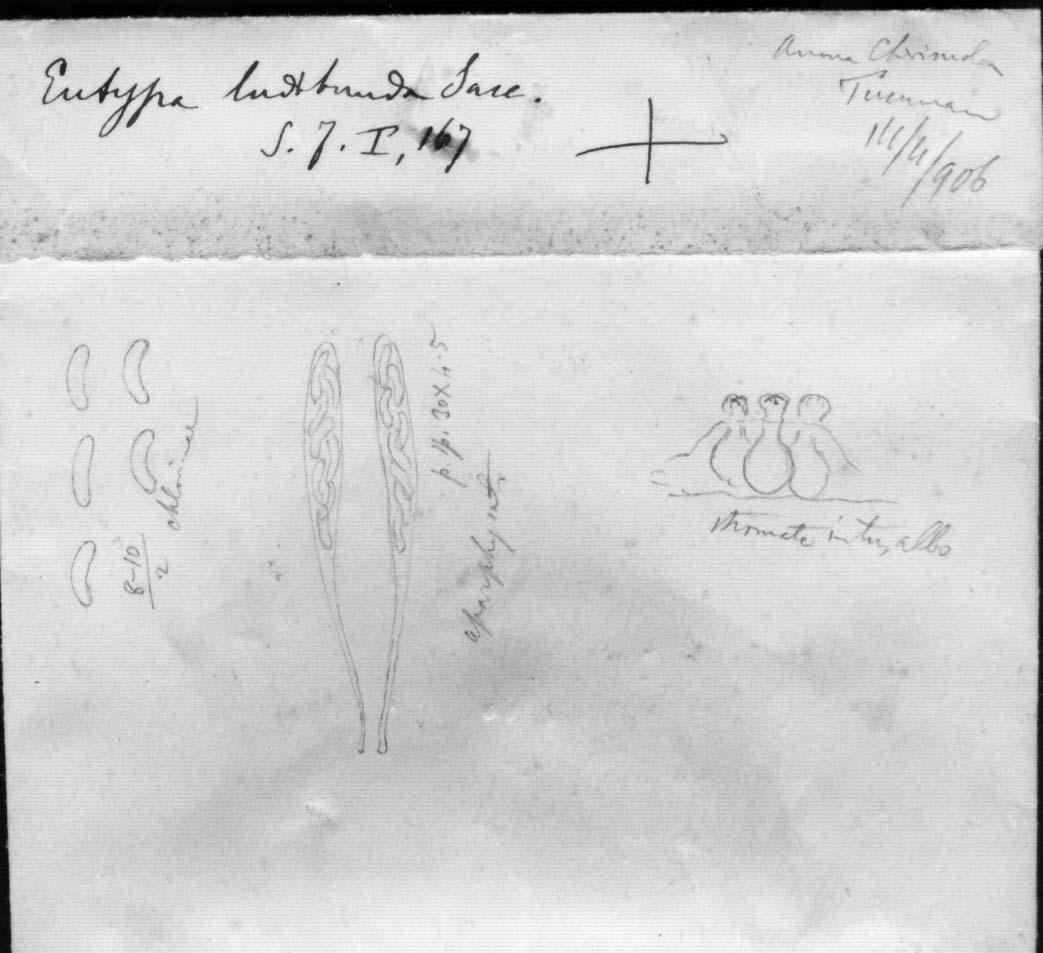 Eutypa ludibunda Sacc.
S. F. I, 167
Anona Chirimola
Tucuman
14/4/906
chlorinae
8-10/2
p. sp. 30 x 4-5
aparaphysat.
stromate intus albo